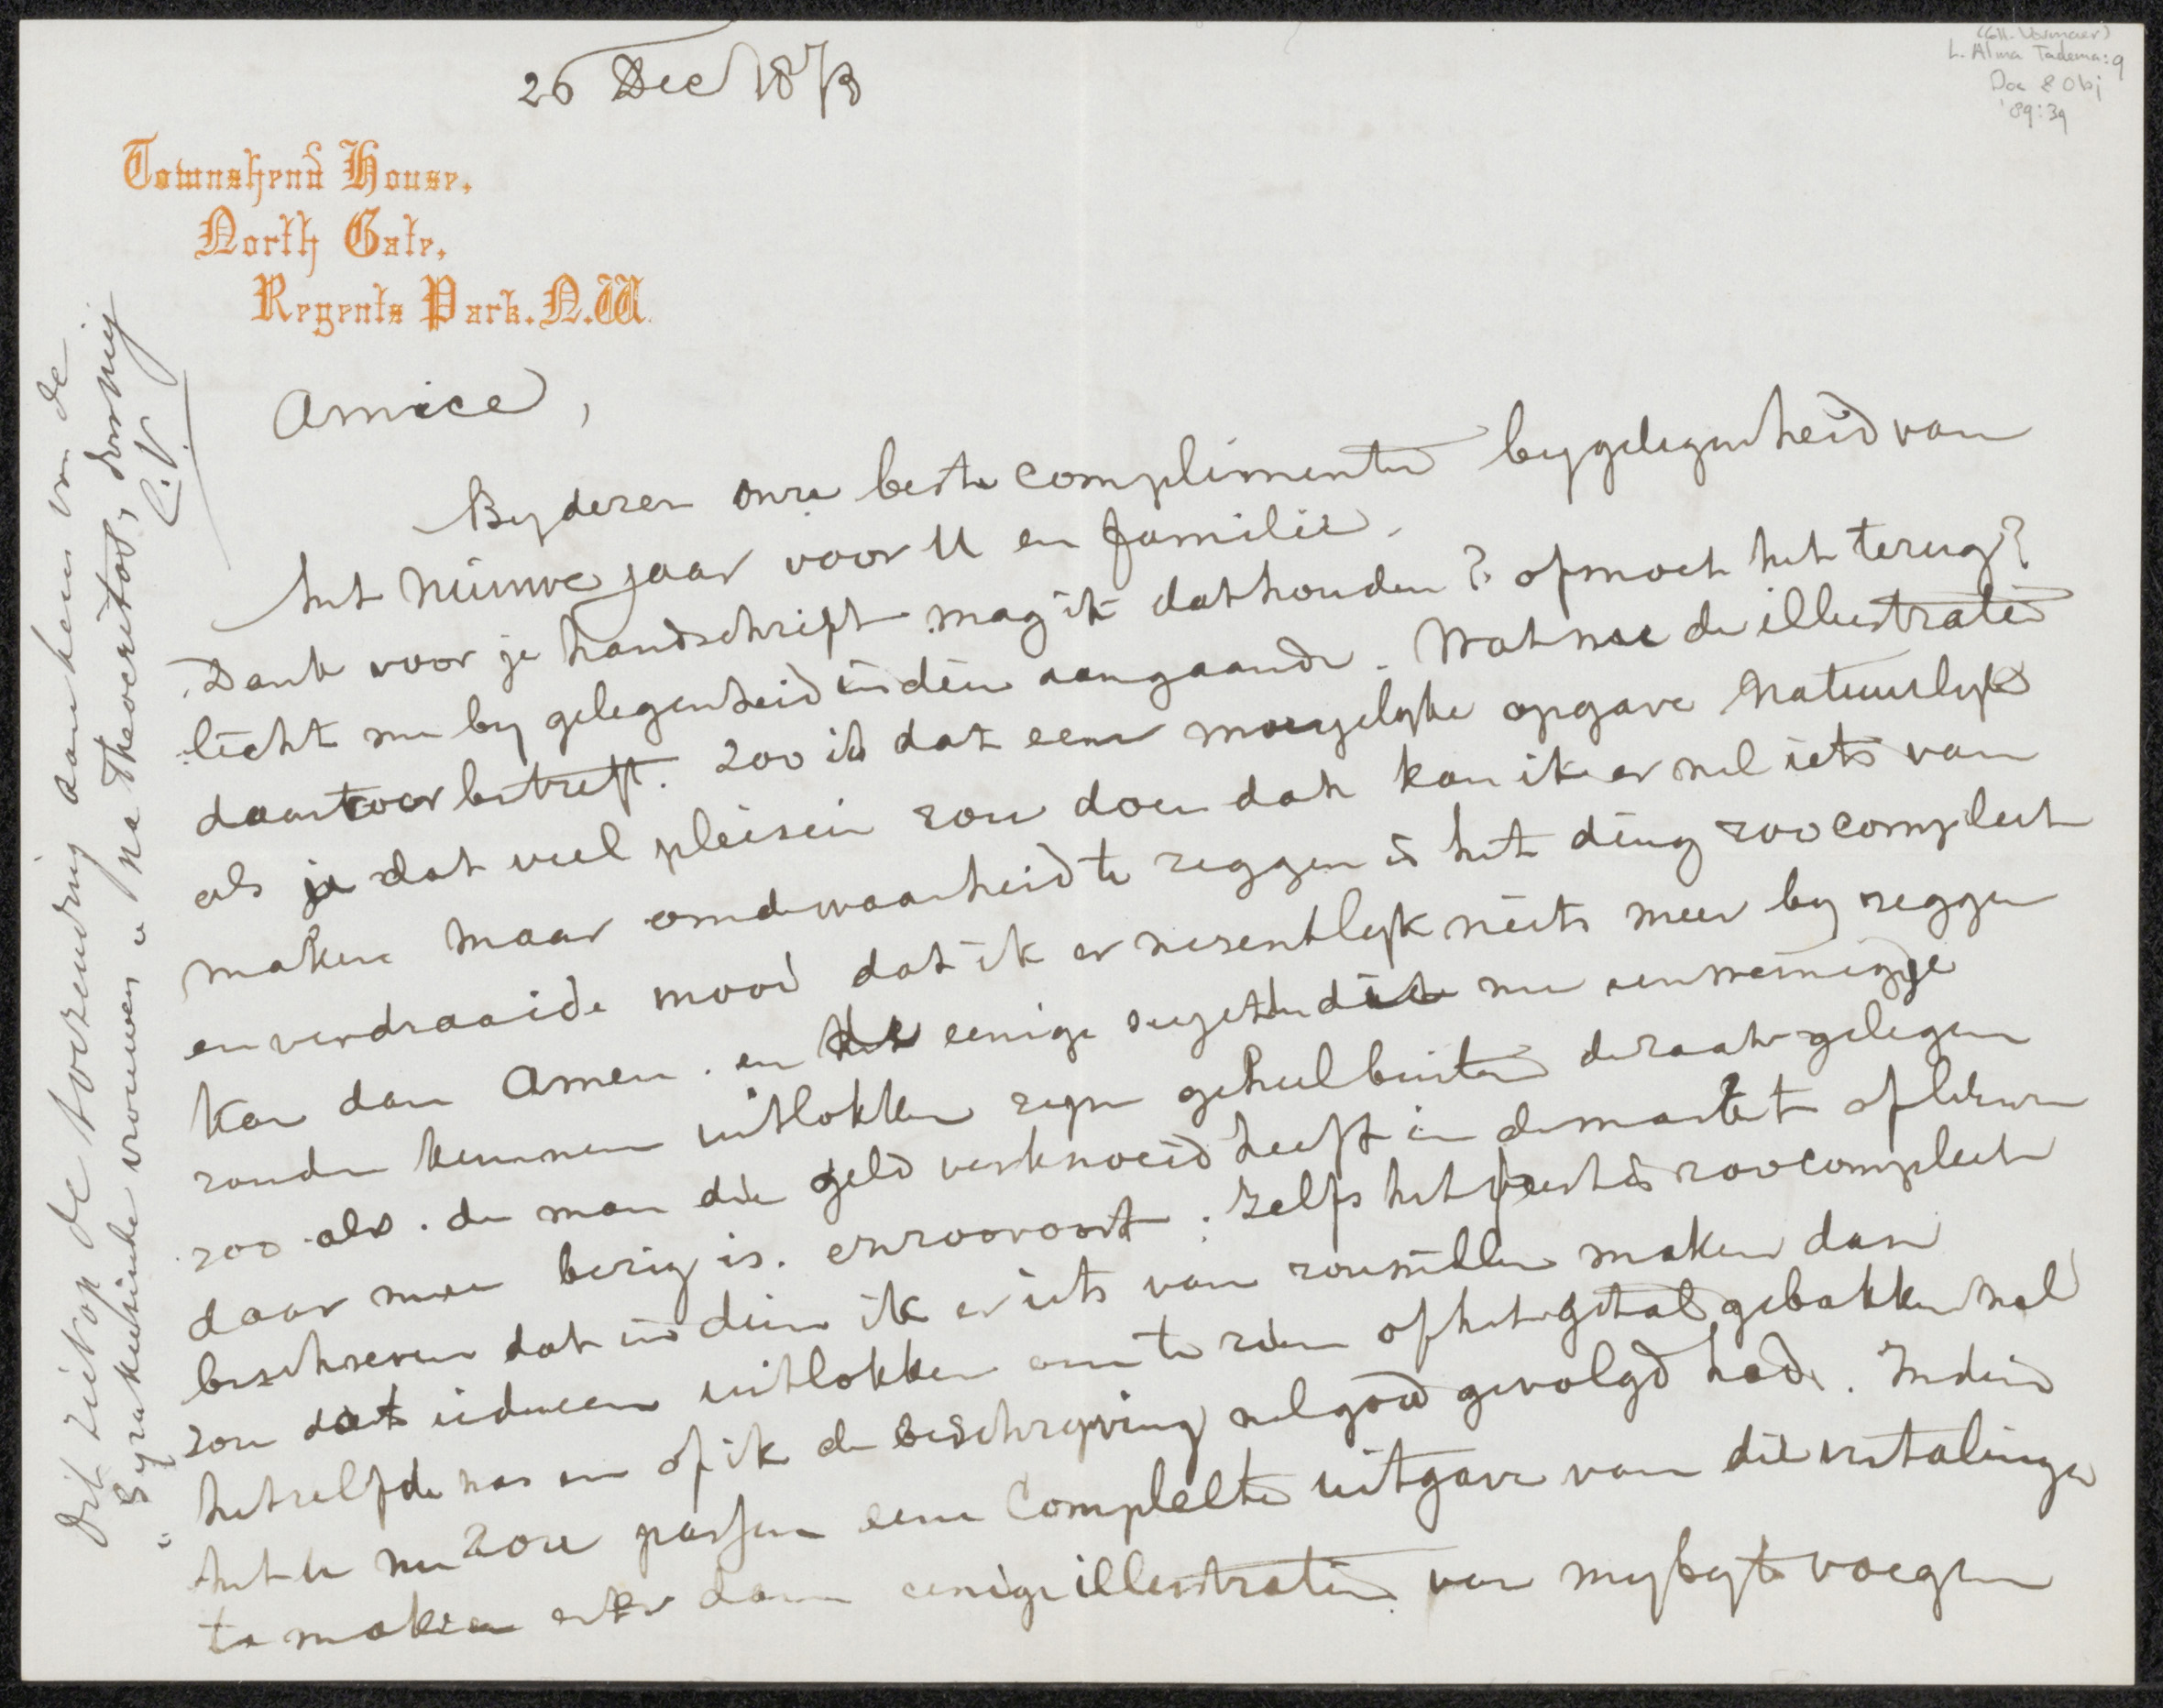 26 Dec 1873
(Coll. Vosmaer)
L. Alma Tadema: 9
Doc & Obj
'89:39
Townshend House,
North Gate,
Regents Park. N.W.
Amice,
By dezen onze beste complimenten by gelegenheid van
het nieuwe jaar voor U en familie.
Dank voor je handschrift mag ik dat houden? of moet het terug?
licht me by gelegenheid indien aangaande. Wat nu de illustratie
daartoe betreft. Zoo is dat eene moeyelyke opgave Natuurlyk
als je dat veel pleisier zou doen dan kan ik er wel iets van
maken maar om de waarheid te zeggen is het ding zoo compleet
en verdraaide mooi dat ik er wezentlyk niets meer by zeggen
kan dan Amen. en de eenige sujetten die me een weinigje
zouden kunnen uitlokken zyn geheel buiten de zaak gelegen
zoo als. de man die geld verknoeid heeft in de markt of
daar mee bezig is. enzoovoort. Zelfs het feest is zoo compleet
beschreven dat indien ik er iets van zou willen maken dan
zou dat iedereen uitlokken om te zien of het getal gebakken wel
hetzelfde was en of ik de beschryving wel goed gevolgd had. Indien
het u nu zou passen eene Compleete uitgave van die vertalingen
te maken en er dan eenige illustratien van my by te voegen
Dit ziet op de toezending aan hem van de
"Syrakusische vrouwen" na Theocritos, door mij
C.V.